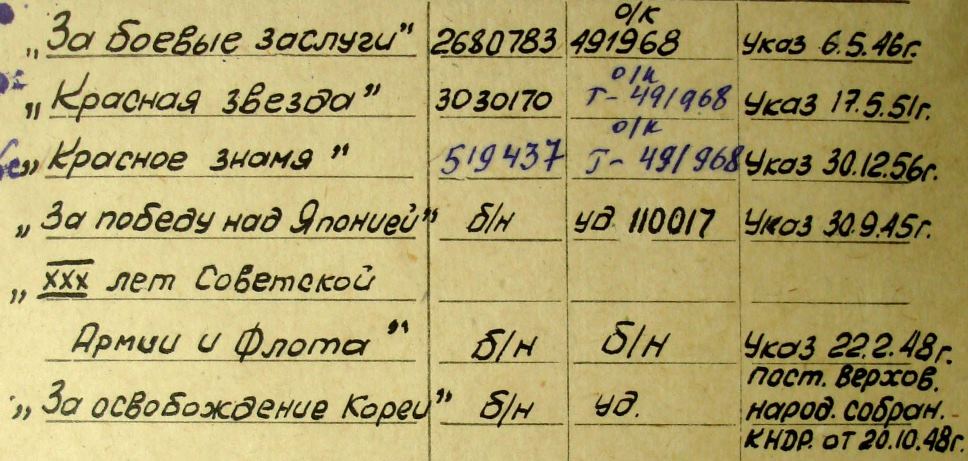 о/к
„За боевые заслуги” 2680783 491968 Указ 6.5.46г.
о/к
„Красная звезда” 3030170 Г-491968 Указ 17.5.51г.
о/к
„Красное знамя” 519437 Г-491968 Указ 30.12.56г.
„За победу над Японией” б/н уд 110017 Указ 30.9.45г.
„XXX лет Советской
Армии и Флота” б/н б/н Указ 22.2.48г.
„За освобождение Кореи” б/н уд. пост. Верхов.
народ. собран.
КНДР. от 20.10.48г.